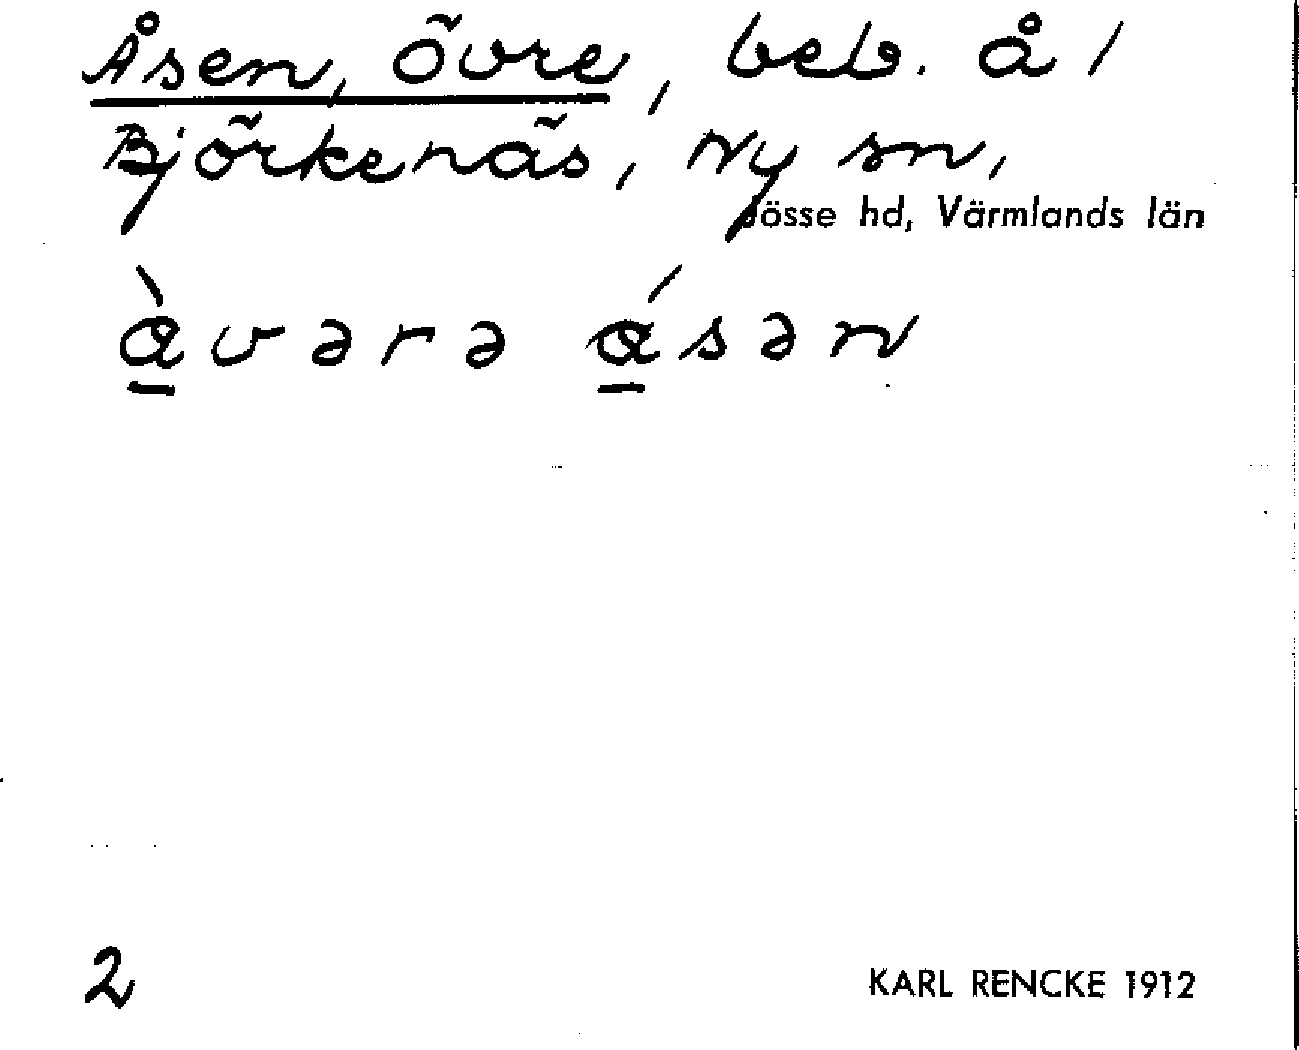 Åsen, övre, beb. å 1
Björkenäs, Ny sn,
Jösse hd, Värmlands län
ὰ̱vərə ά̱sən
2 KARL RENCKE 1912